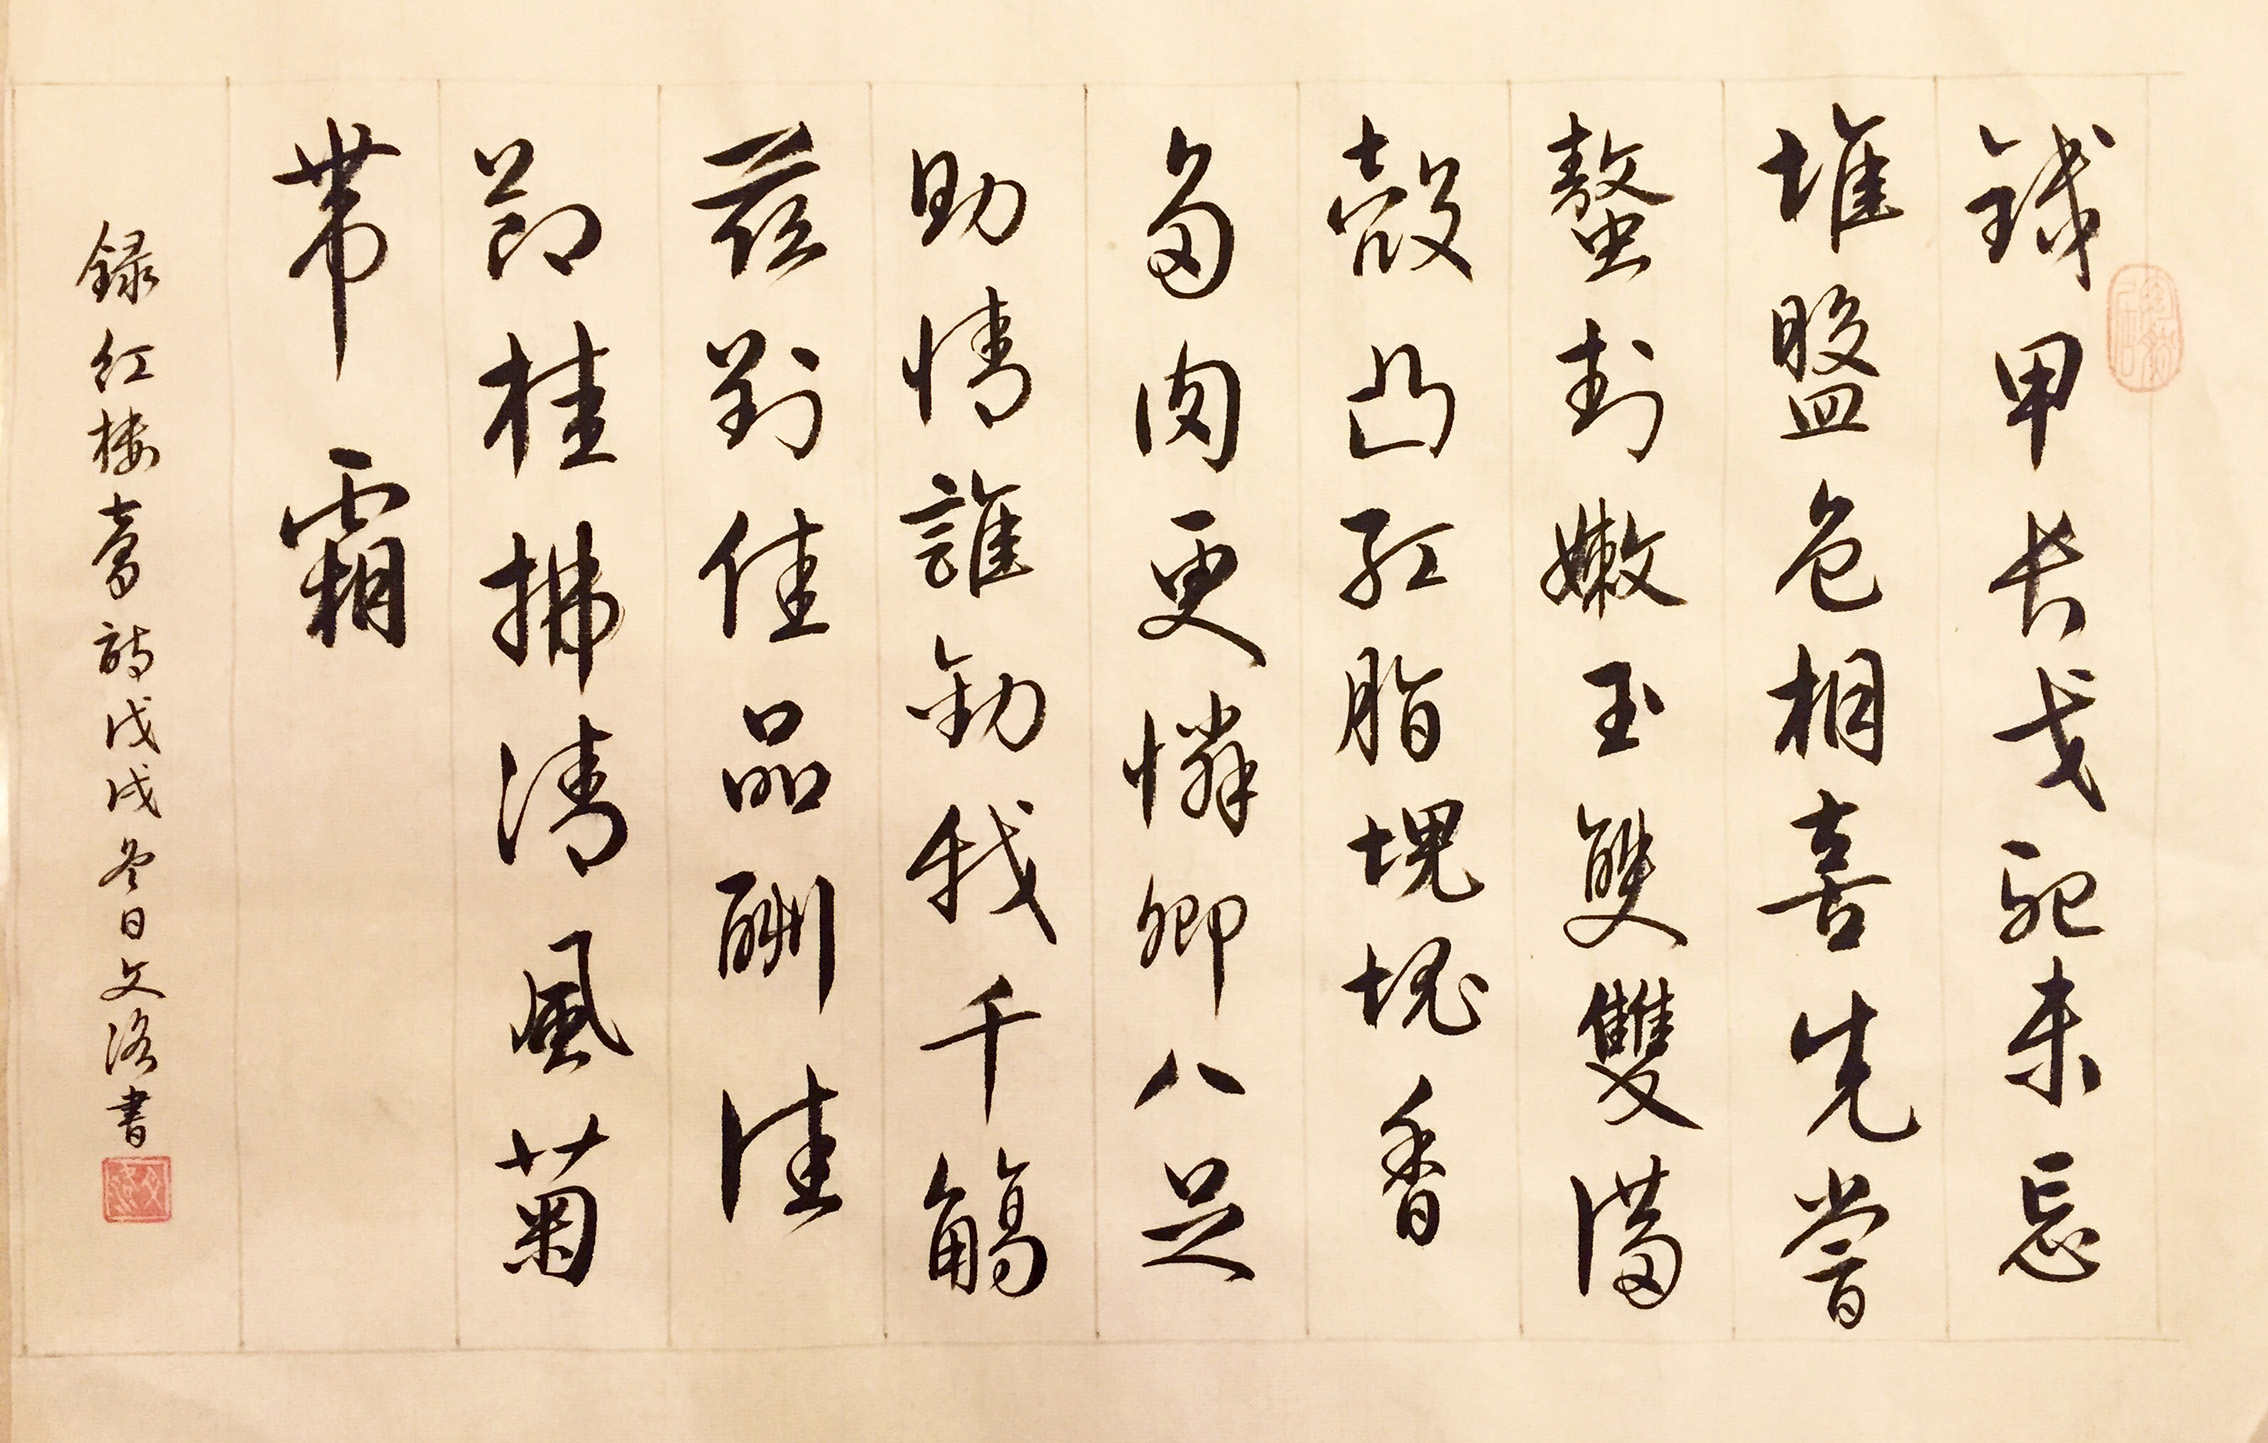 鐵甲長戈死未忘
堆盤色相喜先嘗
螯封嫩玉雙雙滿
殼凸紅脂塊塊香
多肉更憐卿八足
助情誰勸我千觴
茲對佳品酬佳
節桂拂清風菊
帶霜
録紅樓夢詩戊戌冬日文洛書